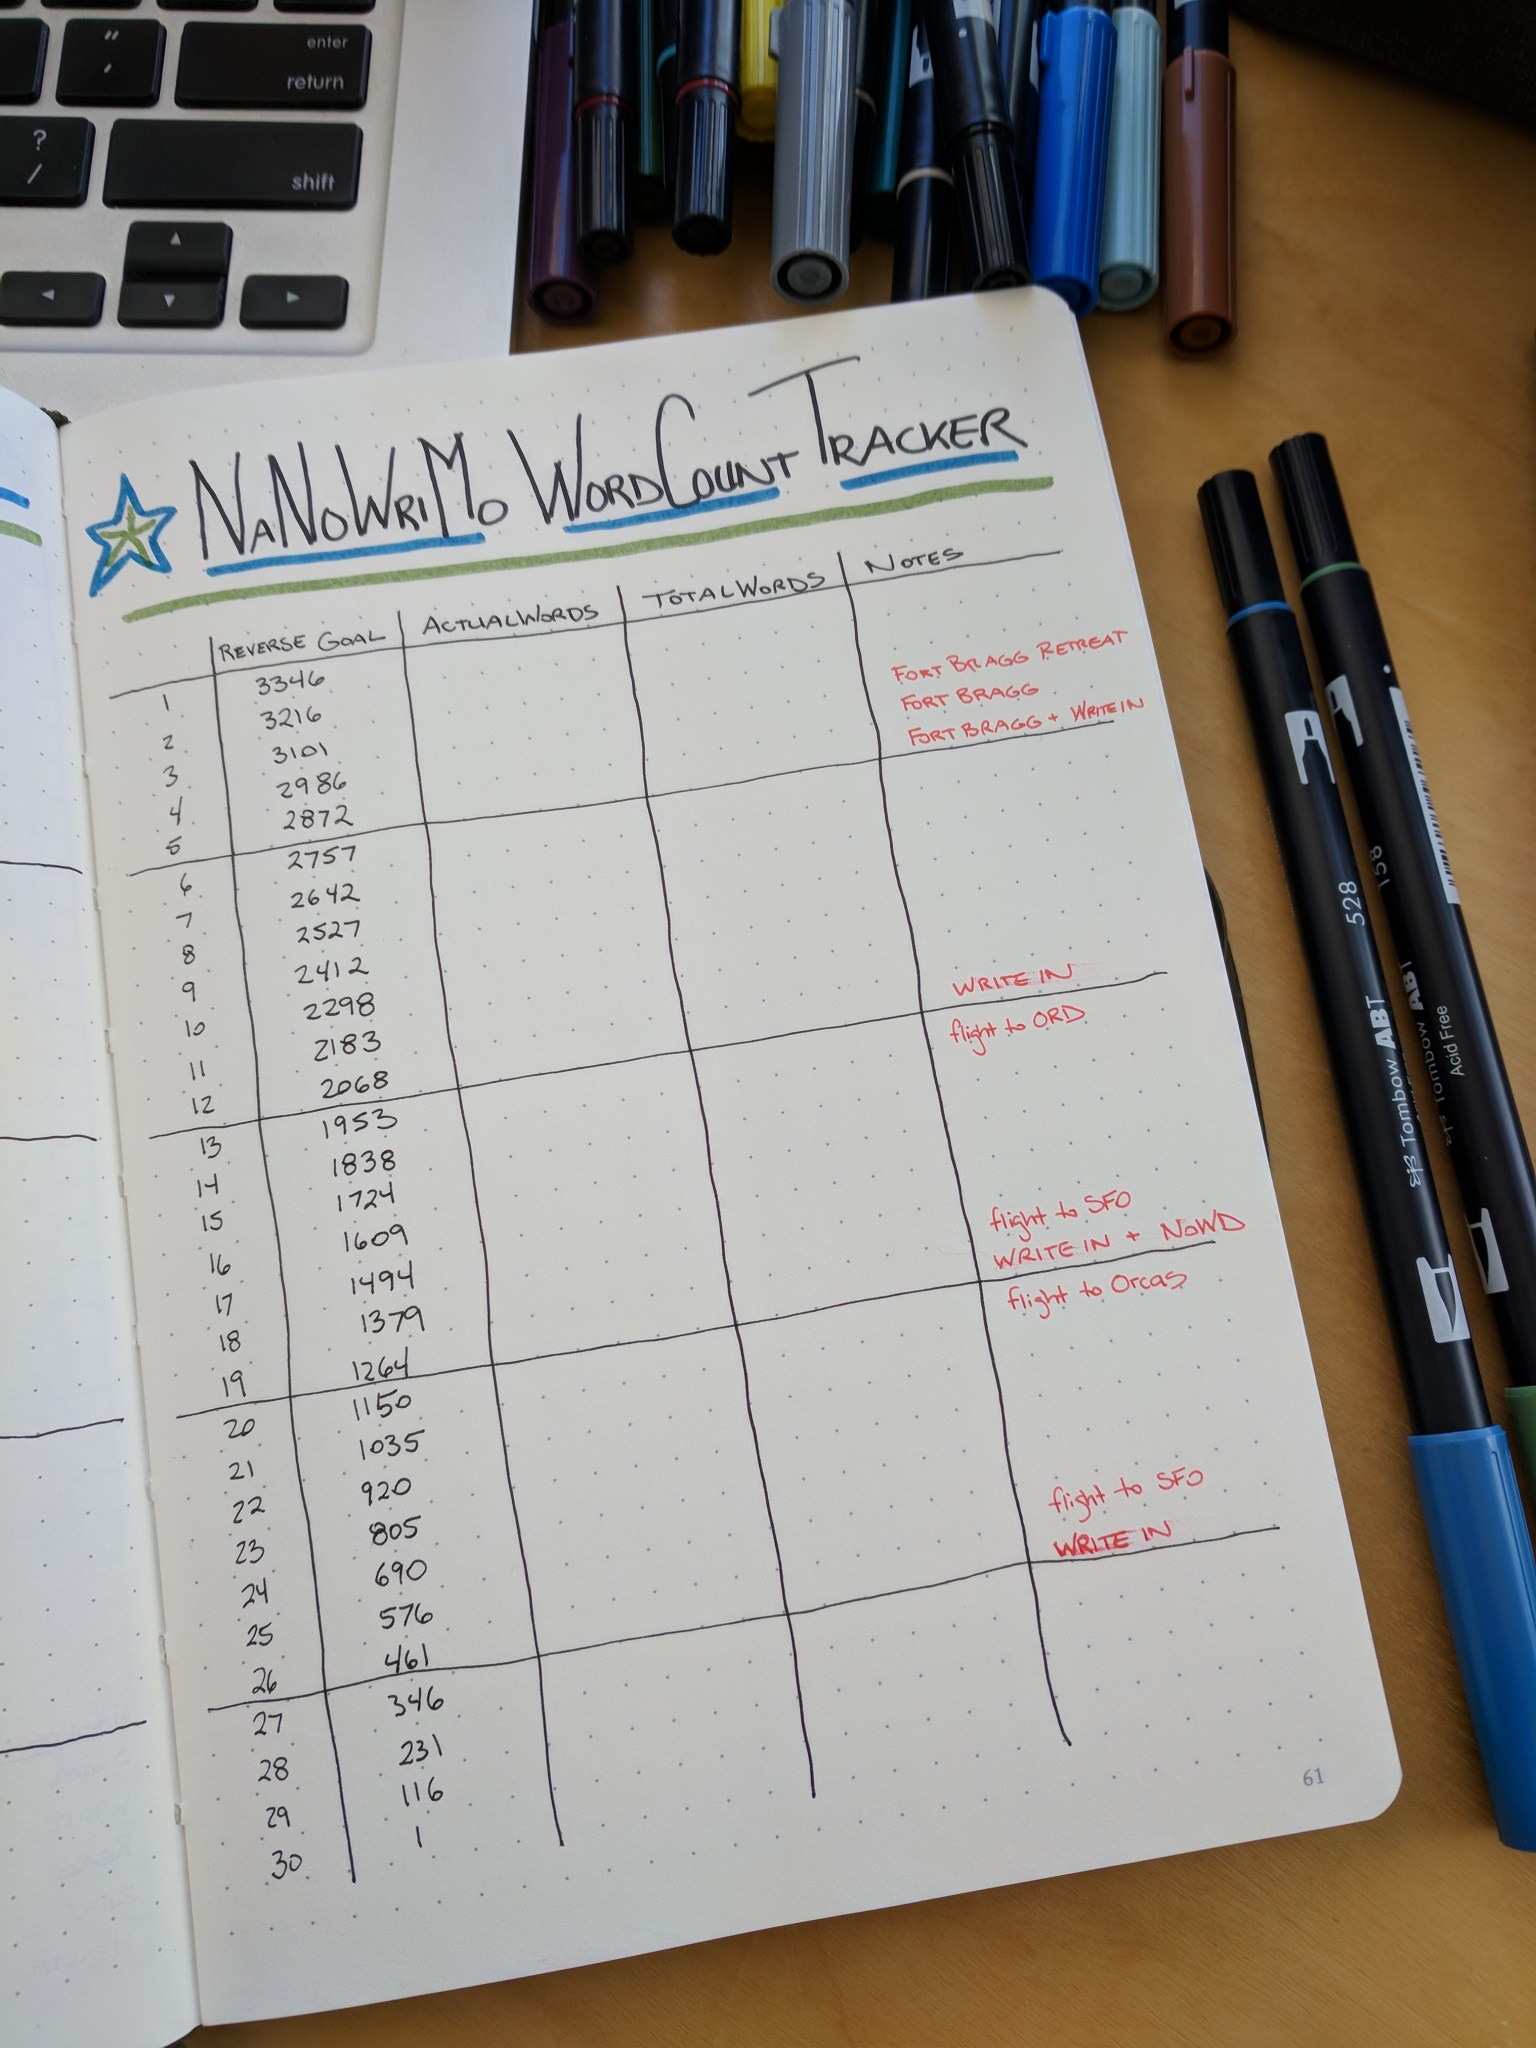 " enter
' return
?
/ shift
NaNoWriMo WordCount Tracker
Reverse Goal Actual Words Total Words Notes
1 3346 Fort Bragg Retreat
2 3216 Fort Bragg
3 3101 Fort Bragg + Write in
4 2986
5 2872
6 2757
7 2642
8 2527
9 2412
10 2298 WRITE IN
11 2183 flight to ORD
12 2068
13 1953
14 1838
15 1724
16 1609 flight to SFO
17 1494 WRITE IN + NoWD
18 1379 flight to Orcas
19 1264
20 1150
21 1035
22 920
23 805
24 690 flight to SFO
25 576 WRITE IN
26 461
27 346
28 231
29 116
30 1
61
528
Tombow ABT
158
Tombow ABT
Acid Free